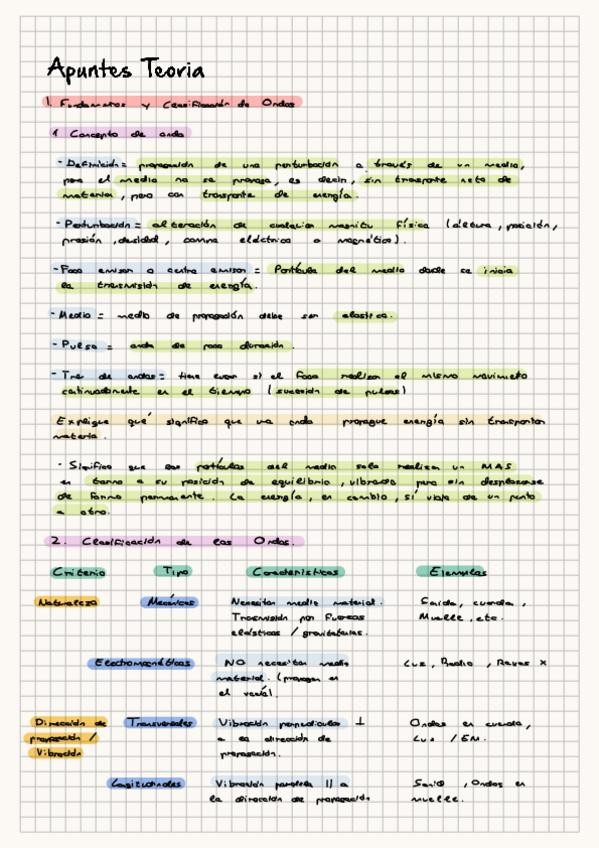 Apuntes Teoria
1. Fundamentos y Clasificación de Ondas
1 Concepto de onda
- Definición = propagación de una perturbación a través de un medio,
pero el medio no se propaga, es decir, sin transporte neto de
materia, pero con transporte de energía.
- Perturbación = alteración de cualquier magnitu física (altura, posición,
presión, densidad, campo eléctrico o magnético).
- Foco emisor o centro emisor = Partícula del medio donde se inicia
la transmisión de energía.
- Medio = medio de propagación debe ser elastico.
- Pulso = onda de poca duración.
- Tren de ondas = tiene lugar si el foco realiza el mismo movimiento
continuamente en el tiempo (sucesión de pulsos)
Explique qué significa que una onda propague energía sin transportar
materia.
- Significa que las partículas del medio solo realizan un MAS
en torno a su posición de equilibrio, vibrando pero sin desplazarse
de forma permanente. La energía, en cambio, sí viaja de un punto
a otro.
2. Clasificación de las Ondas.
Criterio Tipo Características Ejemplos
Naturaleza Mecánicas Necesitan medio material. cuerda,
Transmisión por fuerzas Muelle, etc.
elásticas / gravitatorias.
Electromagnéticas NO necesitan medio Luz, Radio, Rayos X
material. (propagan en
el vacío).
Dirección de Transversales Vibración perpendicular ⊥ Ondas en cuerda,
propagación / a la dirección de Luz / EM.
Vibración propagación.
Longitudinales Vibración paralela || a Sonido, Ondas en
la dirección de propagación muelle.